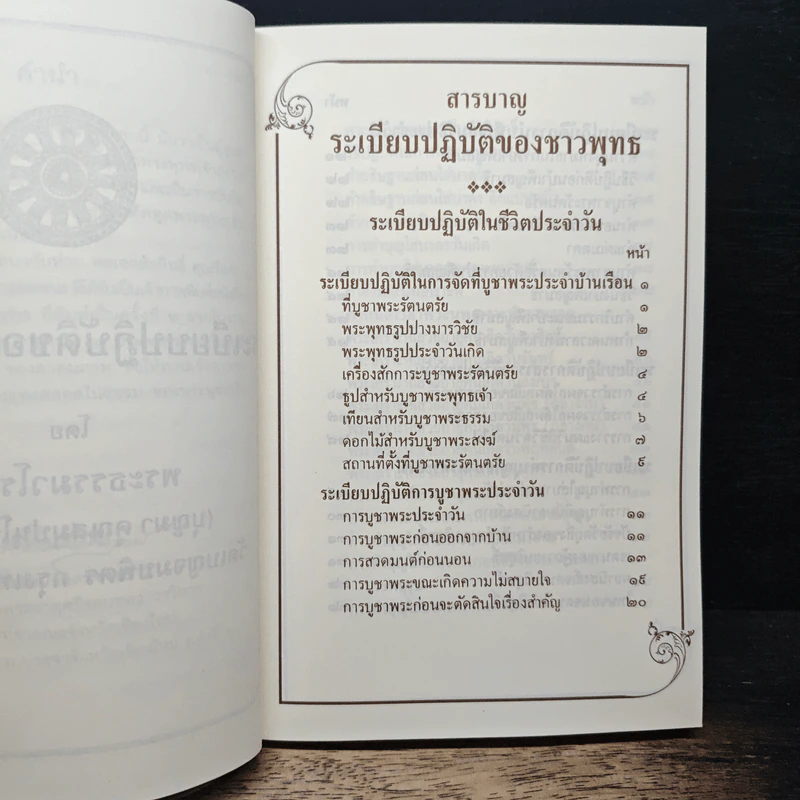 สารบาญ
ระเบียบปฏิบัติของชาวพุทธ
ระเบียบปฏิบัติในชีวิตประจำวัน
หน้า
ระเบียบปฏิบัติในการจัดที่บูชาพระประจำบ้านเรือน ๑
ที่บูชาพระรัตนตรัย ๑
พระพุทธรูปปางมารวิชัย ๒
พระพุทธรูปประจำวันเกิด ๒
เครื่องสักการะบูชาพระรัตนตรัย ๔
ธูปสำหรับบูชาพระพุทธเจ้า ๔
เทียนสำหรับบูชาพระธรรม ๖
ดอกไม้สำหรับบูชาพระสงฆ์ ๗
สถานที่ตั้งที่บูชาพระรัตนตรัย ๙
ระเบียบปฏิบัติการบูชาพระประจำวัน
การบูชาพระประจำวัน ๑๑
การบูชาพระก่อนออกจากบ้าน ๑๑
การสวดมนต์ก่อนนอน ๑๓
การบูชาพระขณะเกิดความไม่สบายใจ ๑๙
การบูชาพระก่อนจะตัดสินใจเรื่องสำคัญ ๒๐